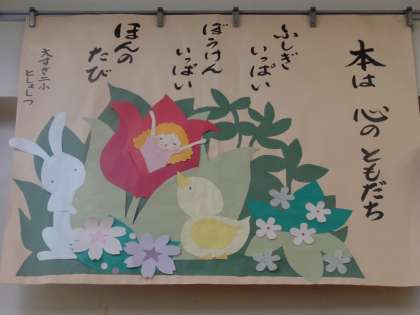 本は 心の ともだち
ふしぎ
いっぱい
ぼうけん
いっぱい
ほんの
たび
大すぎ二小
としょしつ